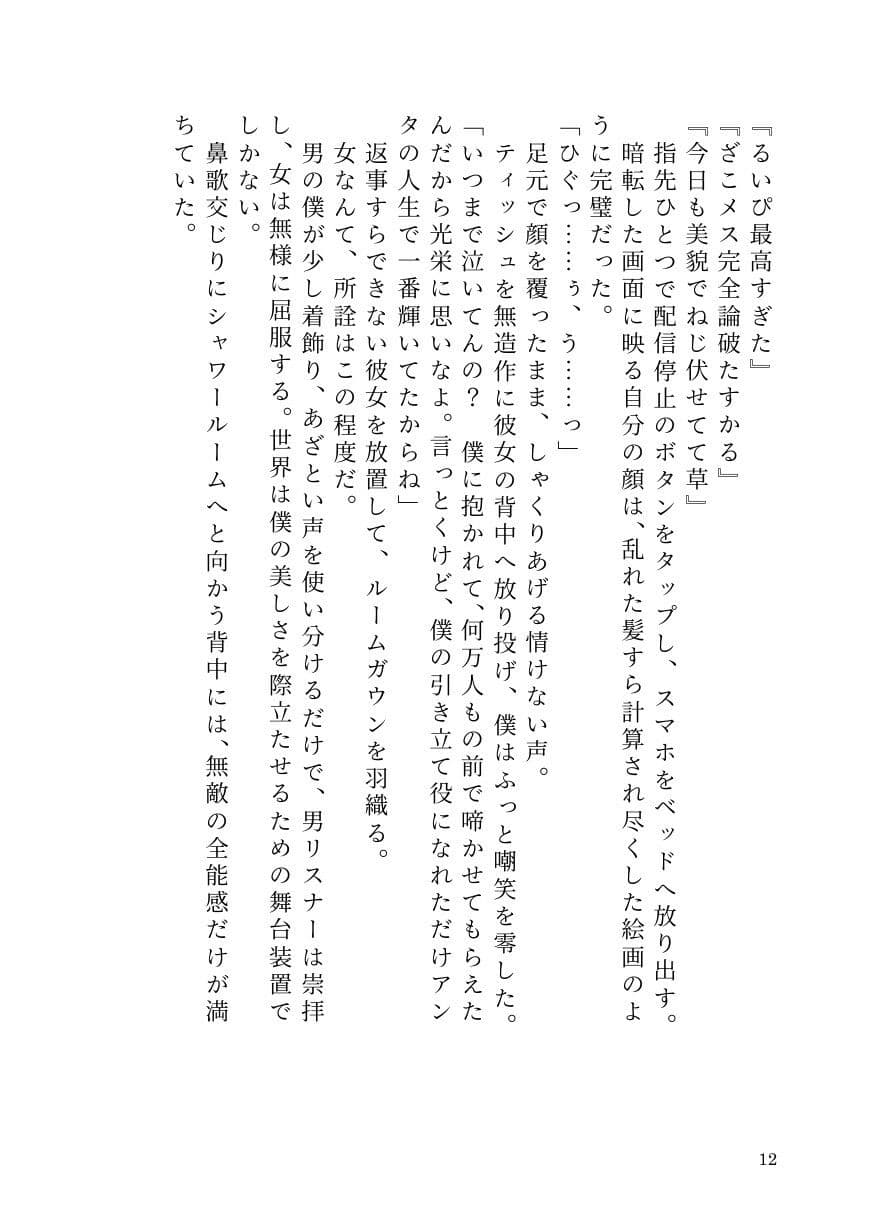 『るいぴ最高すぎた』
『ざこメス完全論破たすかる』
『今日も美貌でねじ伏せてて草』
指先ひとつで配信停止のボタンをタップし、スマホをベッドへ放り出す。
暗転した画面に映る自分の顔は、乱れた髪すら計算され尽くした絵画のよ
うに完璧だった。
「ひぐっ……ぅ、う……っ」
足元で顔を覆ったまま、しゃくりあげる情けない声。
ティッシュを無造作に彼女の背中へ放り投げ、僕はふっと嘲笑を零した。
「いつまで泣いてんの？　僕に抱かれて、何万人もの前で啼かせてもらえた
んだから光栄に思いなよ。言っとくけど、僕の引き立て役になれただけアン
タの人生で一番輝いてたからね」
返事すらできない彼女を放置して、ルームガウンを羽織る。
女なんて、所詮はこの程度だ。
男の僕が少し着飾り、あざとい声を使い分けるだけで、男リスナーは崇拝
し、女は無様に屈服する。世界は僕の美しさを際立たせるための舞台装置で
しかない。
鼻歌交じりにシャワールームへと向かう背中には、無敵の全能感だけが満
ちていた。
12